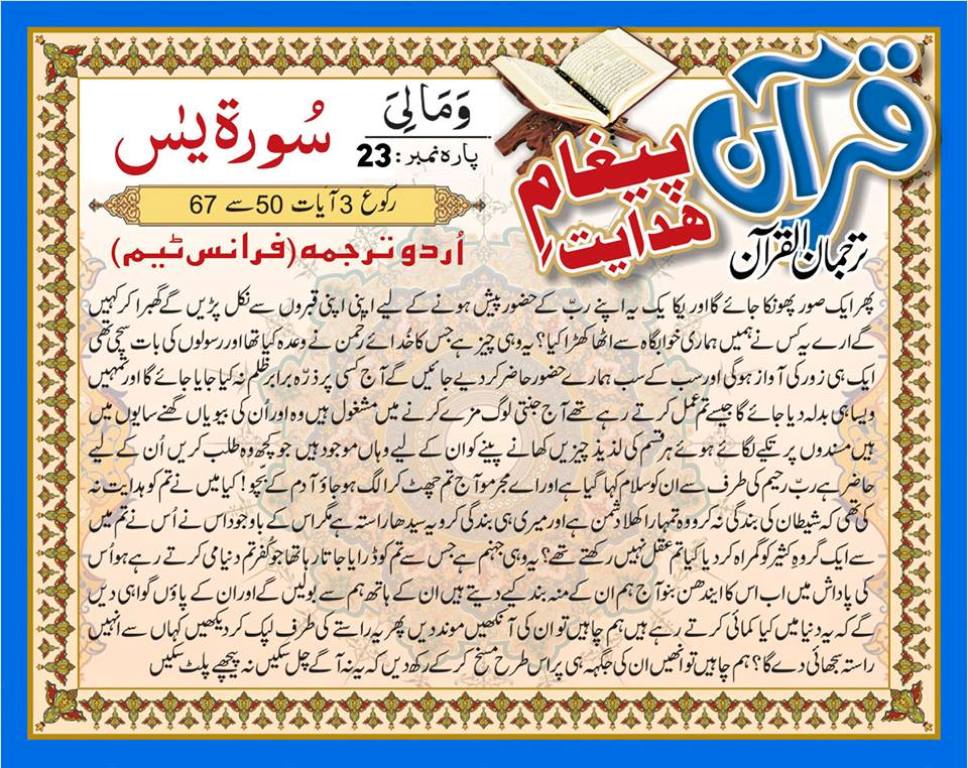 قرآن
پیغامِ
ھدایت
ترجمان القرآن
وَمَالِیَ
پارہ نمبر: 23
سُورۃ یٰس
رکوع 3 آیات 50 سے 67
اُردو ترجمہ (فرانس ٹیم)
پھر ایک صور پھونکا جائے گا اور یکا یک یہ اپنے ربّ کے حضور پیش ہونے کے لیے اپنی اپنی قبروں سے نکل پڑیں گے گھبرا کر کہیں
گے ارے یہ کس نے ہمیں ہماری خوابگاہ سے اٹھا کھڑا کیا؟ یہ وہی چیز ہے جس کا خُدائے رحمٰن نے وعدہ کیا تھا اور رسولوں کی بات سچی تھی
ایک ہی زور کی آواز ہوگی اور سب کے سب ہمارے حضور حاضر کر دیے جائیں گے آج کسی پر ذرّہ برابر ظلم نہ کیا جایا جائے گا اور تمہیں
ویسا ہی بدلہ دیا جائے گا جیسے تم عمل کرتے رہے تھے آج جنتی لوگ مزے کرنے میں مشغول ہیں وہ اور اُن کی بیویاں گھنے سایوں میں
ہیں مسندوں پر تکیے لگائے ہوئے ہر قسم کی لذیذ چیزیں کھانے پینے کو ان کے لیے وہاں موجود ہیں جو کچھ وہ طلب کریں اُن کے لیے
حاضر ہے ربّ رحیم کی طرف سے ان کو سلام کہا گیا ہے اور اے مجرمو آج تم چھٹ کر الگ ہو جاؤ آدم کے بچّو! کیا میں نے تم کو ہدایت نہ
کی تھی کہ شیطان کی بندگی نہ کرو وہ تمہارا کھلا دشمن ہے اور میری ہی بندگی کرو یہ سیدھا راستہ ہے مگر اس کے باوجود اس نے اُس نے تم میں
سے ایک گروہِ کثیر کو گمراہ کر دیا کیا تم عقل نہیں رکھتے تھے؟ یہ وہی جہنم ہے جس سے تم کو ڈرایا جاتا رہا تھا جو کُفر تم دنیا می کرتے رہے ہو اُس
کی پاداش میں اب اس کا ایندھن بنو آج ہم ان کے منہ بند کیے دیتے ہیں ان کے ہاتھ ہم سے بولیں گے اور ان کے پاؤں گواہی دیں
گے کہ یہ دنیا میں کیا کمائی کرتے رہے ہیں ہم چاہیں تو ان کی آنکھیں موند دیں پھر یہ راستے کی طرف لپک کر دیکھیں کہاں سے انہیں
راستہ سجھائی دے گا؟ ہم چاہیں تو انھیں ان کی جگہہ ہی پر اس طرح مسخ کر کے رکھ دیں کہ یہ نہ آگے چل سکیں نہ پیچھے پلٹ سکیں